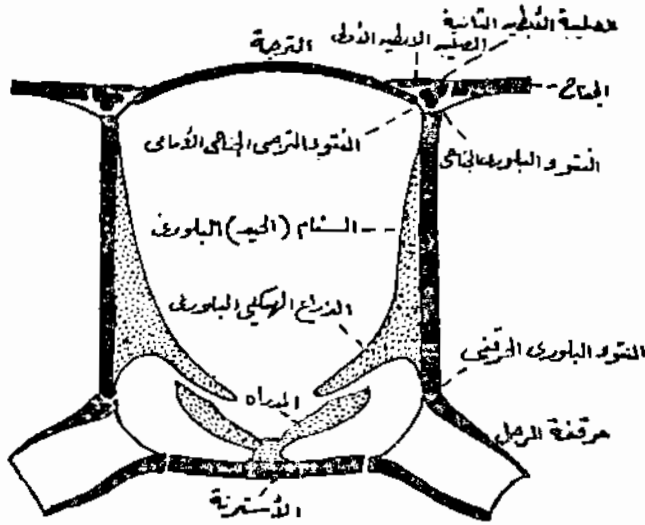 الصليبة الأبطيه الثانية
الصليبه الابطيه الأولى
الترجة
الجناح
النتوء الترجى الجناحى الأمامى
النتوء البلورى الجناحى
السنام (الحيد) البلورى
الذراع الهيكلي البلورى
النتوء البلورى الحرقفى
المدراه
حرقفة الرجل
الأسترنة